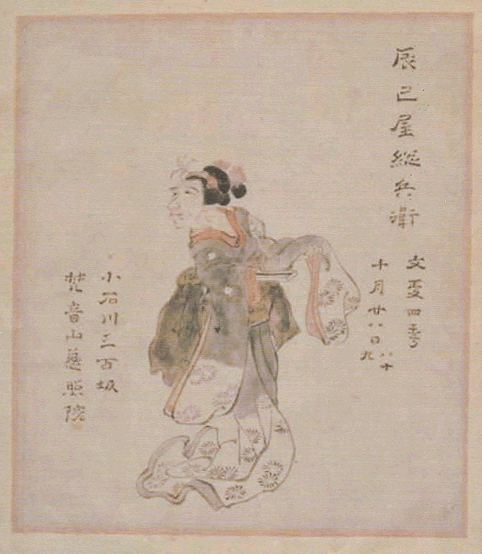 辰巳屋総兵衛
文政四年
十月廿八日
八十
九
小石川三百坂
梵音山慈照院